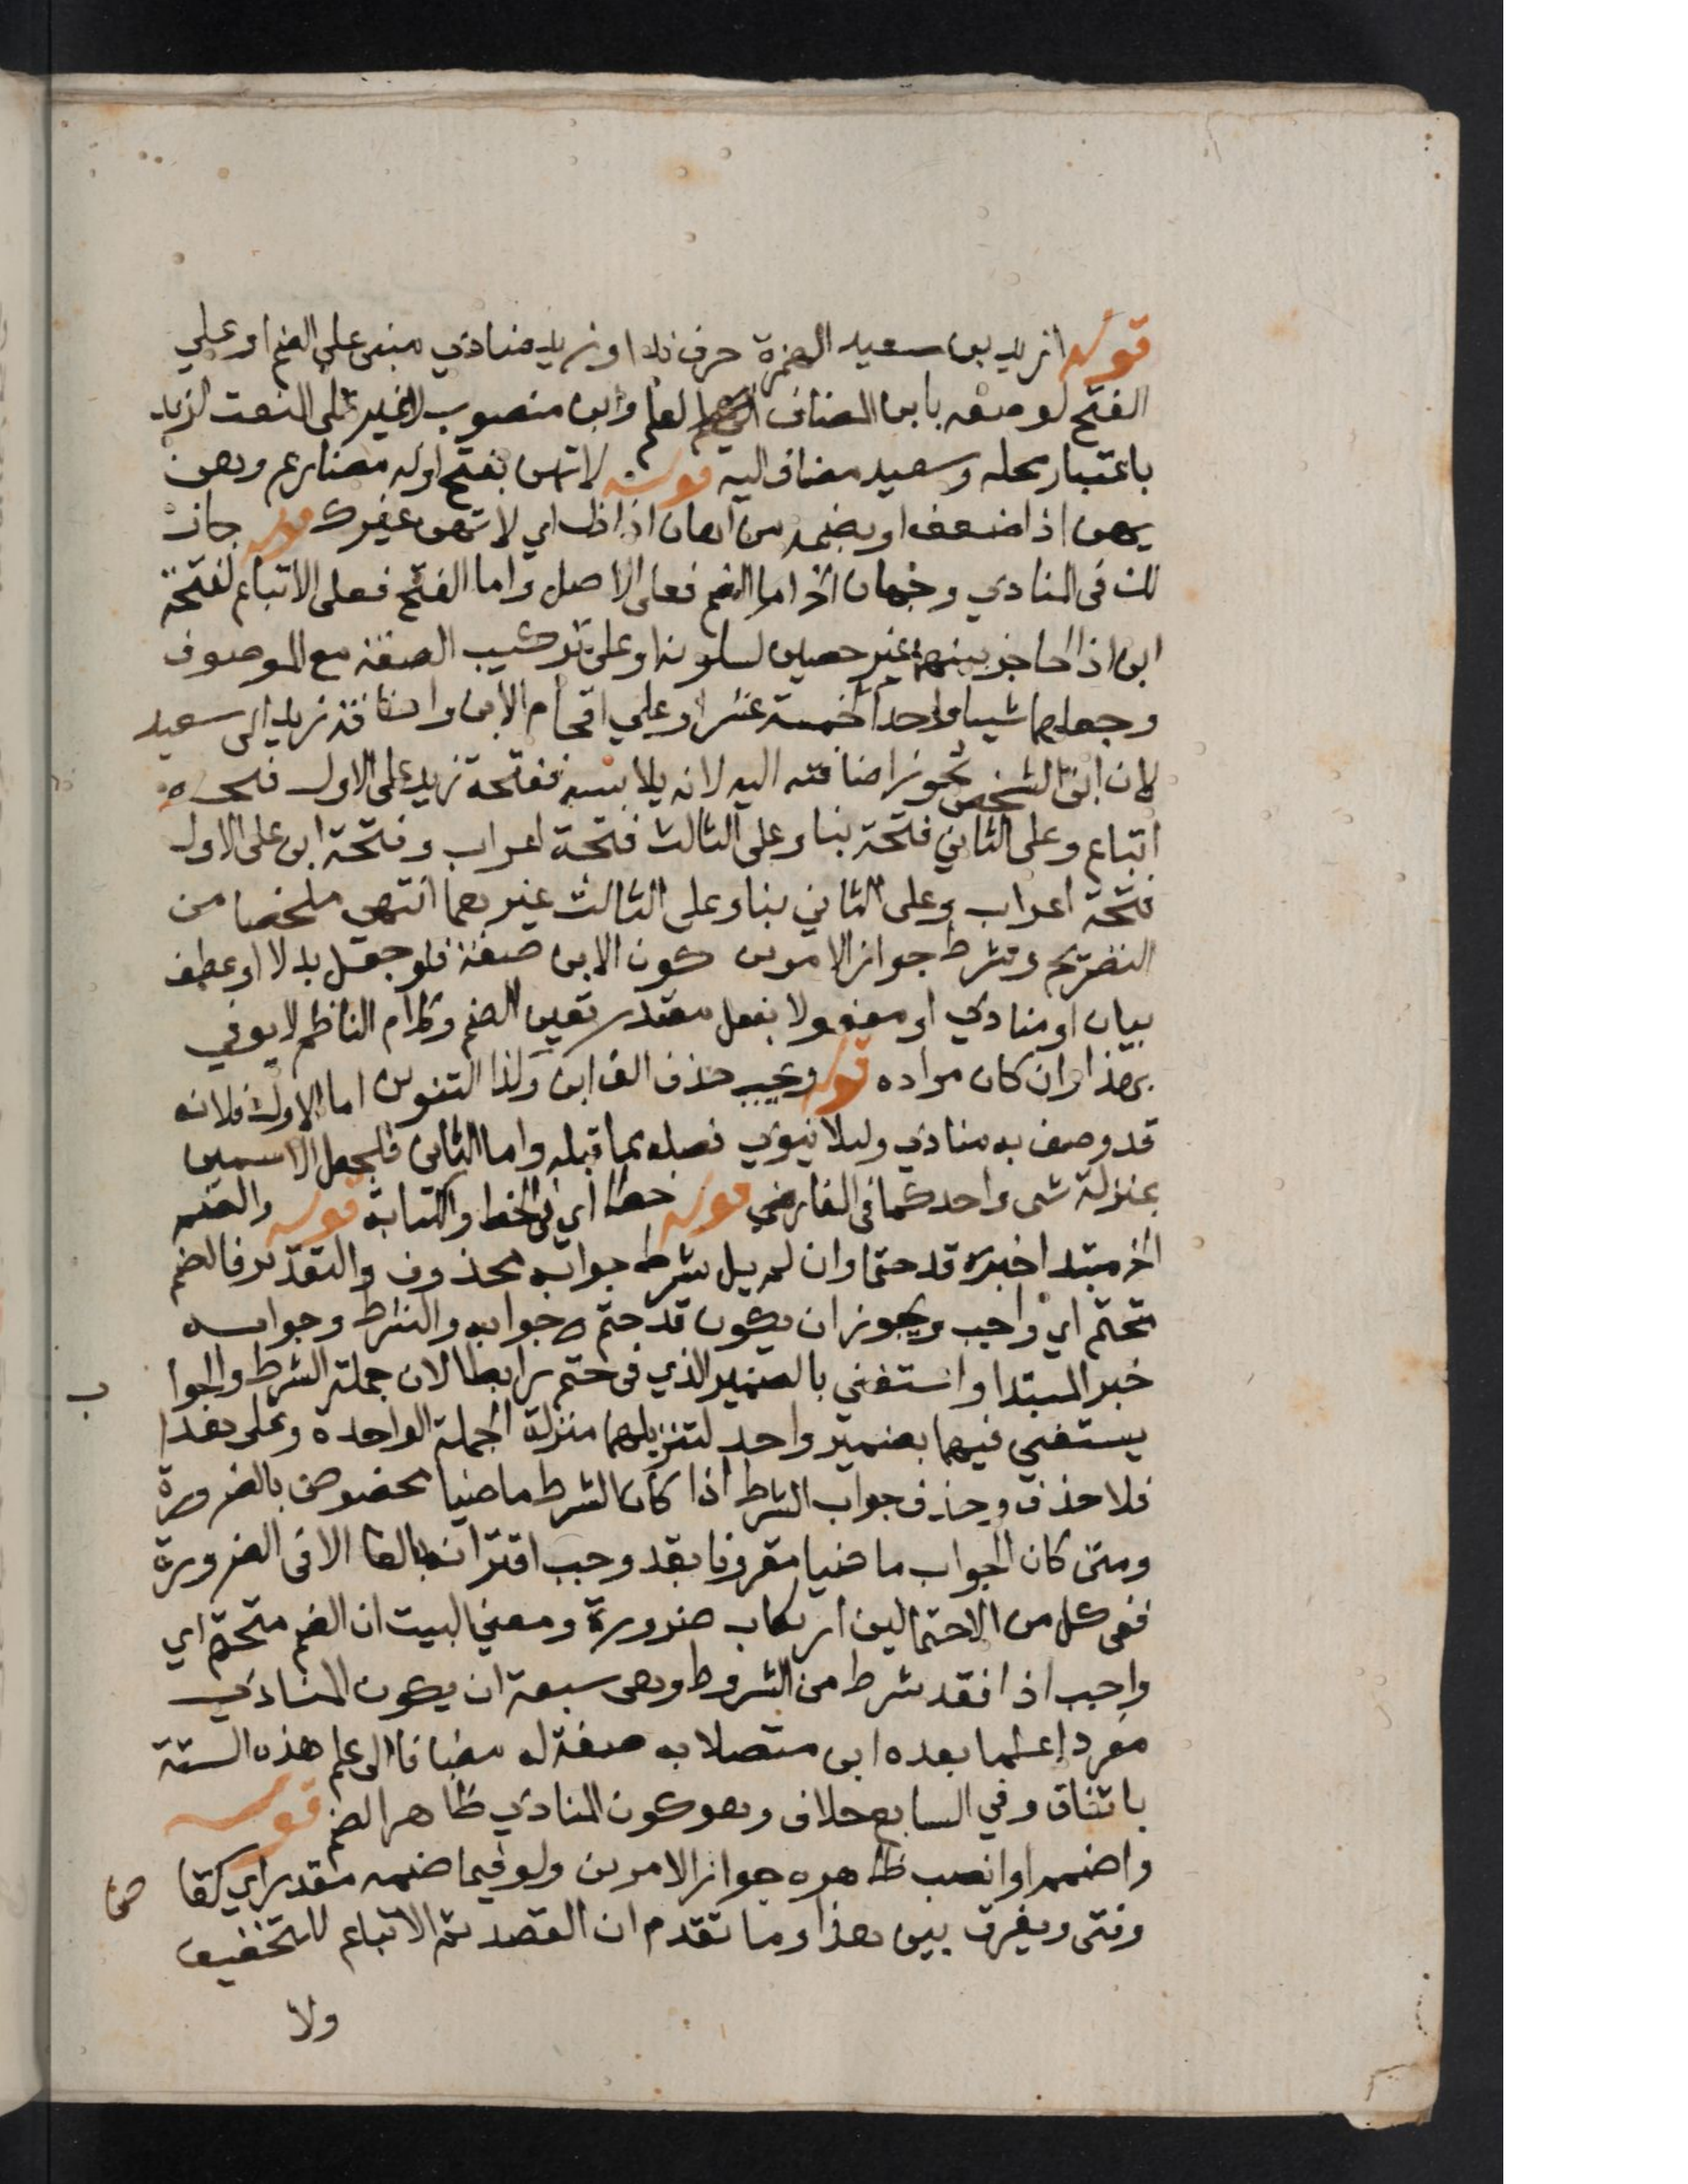 قوله ازيد بن سعيد الهمزة حرف ندا وزيد منادي مبني على الضم او علي
الفتح لوصفه بابن المضاف لعلم وابن منصوب لا غير على النعت لزيد
باعتبار محله وسعيد مضاف اليه قوله لا تهن بفتح اوله مضارع وهن
يهن اذا ضعف او بضمه من اهان اذا ذل اي لا تهن غيرك قوله جاز
لك في المنادي وجهان الخ اما الضم فعلى الاصل واما الفتح فعلى الاتباع لفتحة
ابن اذ الحاجز بينهما غير حصين لسكونه او على تركيب الصفة مع الموصوف
وجعلهما شيا واحدا كخمسة عشر او علي اقحام الابن واضافة زيد الى سعيد
لان ابن الشخص تجوز اضافته اليه لانه يلابسه ففتحة زيد على الاول فتحة
اتباع وعلى الثاني فتحة بنا وعلى الثالث فتحة اعراب وفتحة ابن على الاول
فتحة اعراب وعلى الثاني بنا وعلى الثالث غيرهما انتهى ملخصا من
التصريح وشرط جواز الامرين كون الابن صفة فلو جعل بدلا او عطف
بيان او منادي او مفعولا بفعل مقدر تعين الضم وكلام الناظم لا يوفي
بهذا وان كان مراده قوله ويجب حذف الف ابن وكذا التنوين اما الاول فلانه
قد وصف به منادي وليلا ينوي فصله عما قبله واما الثاني فلجعل الاسمين
بمنزلة شي واحد كما في الفارضي قوله خطا اي في الخط والكتابة قوله والضم
الخ مبتدا خبره قد حتما وان لم يل شرط جوابه محذوف والتقدير فالضم
تحتم اي واجب ويجوز ان يكون قد حتم جوابه والشرط وجوابه
خبر المبتدا واستغني بالضمير الذي في حتم رابطا لان جملة الشرط والجوا
ب
يستغني فيهما بضمير واحد لتنزيلهما منزلة الجملة الواحدة وعلى هذا
فلا حذف وحذف جواب الشرط اذا كان الشرط ماضيا مخصوص بالضرورة
ومتى كان الجواب ماضيا مقرونا بقد وجب اقترانه بالفا الا في الضرورة
ففي كل من الاحتمالين ارتكاب ضرورة ومعني البيت ان الضم متحتم اي
واجب اذا فقد شرط من الشروط وهي سبعة ان يكون المنادي
مفردا علما بعده ابن متصلا به صفة له مضافا الى علم هذه الستة
باتفاق وفي السابع خلاف وهو كون المنادي ظاهر الضم قوله
واضمم او انصب ظاهره جواز الامرين ولو فيما ضمه مقدر اي كقا
ض
وفتى ويفرق بين هذا وما تقدم ان القصد ثم الاتباع للتخفيف
ولا